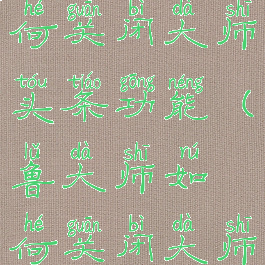 hé guān bì dà shī
何关闭大师
tóu tiáo gōng néng
头条功能（
lǔ dà shī rú
鲁大师如
hé guān bì dà shī
何关闭大师